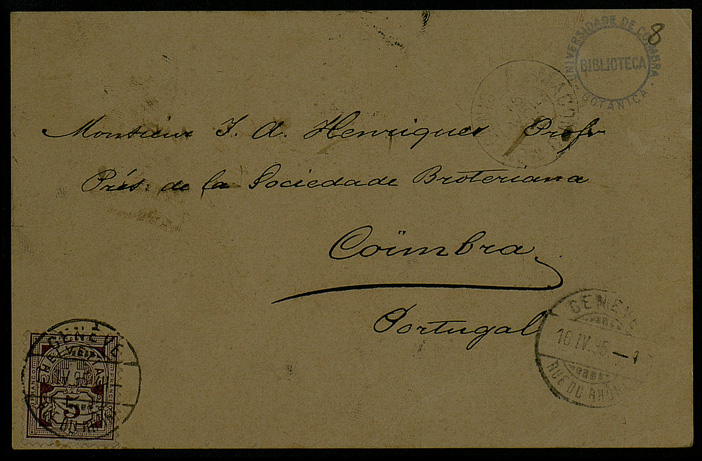 8
UNIVERSIDADE DE COIMBRA
BIBLIOTECA
BOTANICA
Monsieur J. A. Henriques Profr
Prés. de la Sociedade Broteriana
Coïmbra
Portugal
GENEVE
16 IV. 95 — 
RUE DU RHONE
GENEVE
HELVETIA
5